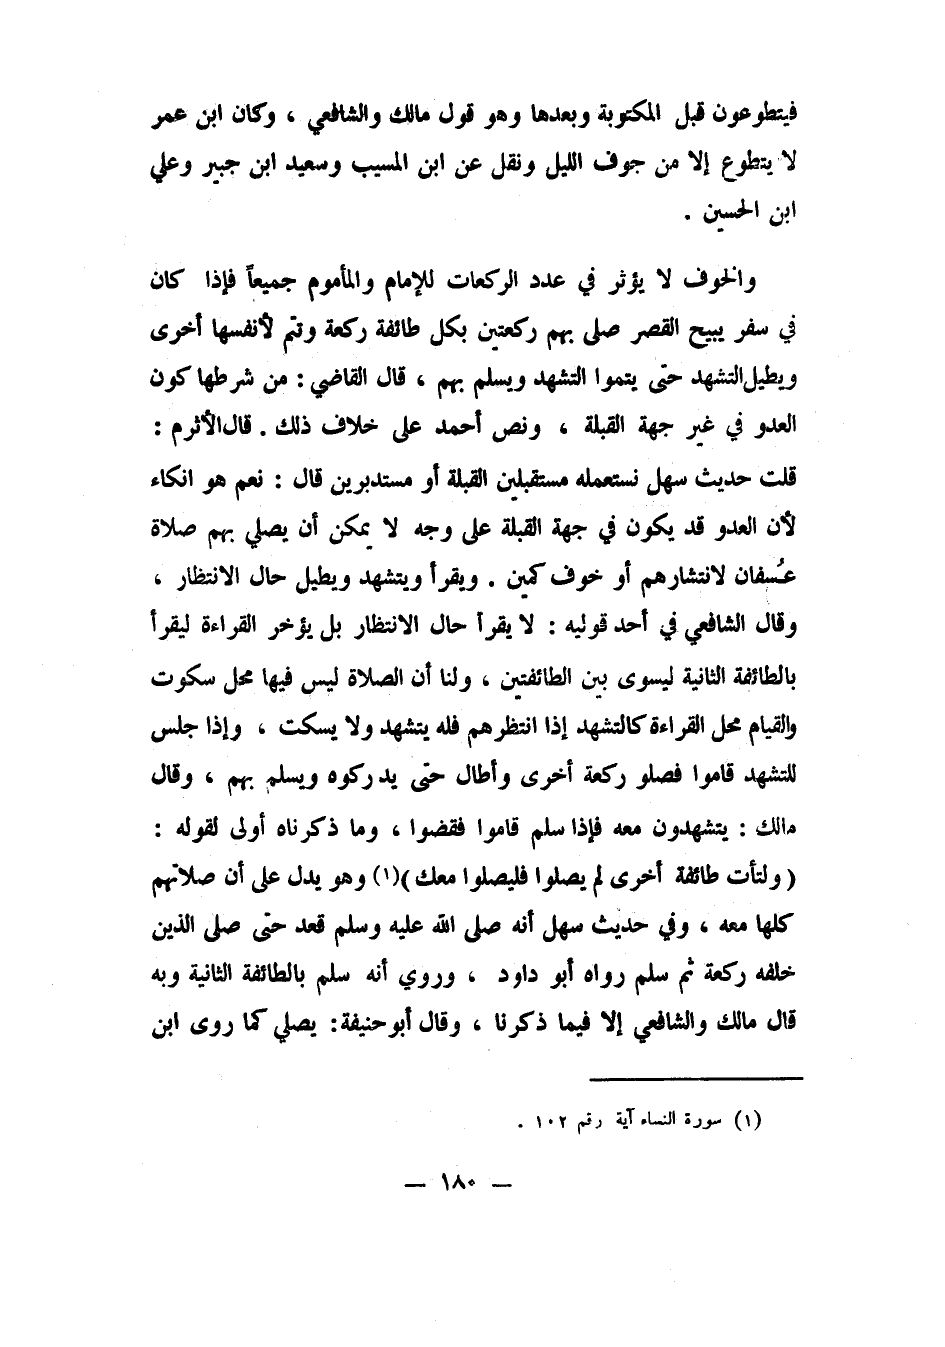 فيتطوعون قبل المكتوبة وبعدها وهو قول مالك والشافعي ، وكان ابن عمر
لا يتطوع إلا من جوف الليل ونقل عن ابن المسيب وسعيد ابن جبير وعلي
ابن الحسين .
والخوف لا يؤثر في عدد الركعات للإمام والمأموم جميعاً فإذا كان
في سفر يبيح القصر صلى بهم ركعتين بكل طائفة ركعة وتتم لأنفسها أخرى
ويطيل التشهد حتى يتموا التشهد ويسلم بهم ، قال القاضي : من شرطها كون
العدو في غير جهة القبلة ، ونص أحمد على خلاف ذلك . قال الأثرم :
قلت حديث سهل نستعمله مستقبلين القبلة أو مستدبرين قال : نعم هو انكاء
لأن العدو قد يكون في جهة القبلة على وجه لا يمكن أن يصلي بهم صلاة
عُسفان لانتشارهم أو خوف كمين . ويقرأ ويتشهد ويطيل حال الانتظار ،
وقال الشافعي في أحد قوليه : لا يقرأ حال الانتظار بل يؤخر القراءة ليقرأ
بالطائفة الثانية ليسوى بين الطائفتين ، ولنا أن الصلاة ليس فيها محل سكوت
والقيام محل القراءة كالتشهد إذا انتظرهم فله يتشهد ولا يسكت ، وإذا جلس
للتشهد قاموا فصلو ركعة أخرى وأطال حتى يدركوه ويسلم بهم ، وقال
مالك : يتشهدون معه فإذا سلم قاموا فقضوا ، وما ذكرناه أولى لقوله :
( ولتأت طائفة أخرى لم يصلوا فليصلوا معك )(١) وهو يدل على أن صلاتهم
كلها معه ، وفي حديث سهل أنه صلى الله عليه وسلم قعد حتى صلى الذين
خلفه ركعة ثم سلم رواه أبو داود ، وروي أنه سلم بالطائفة الثانية وبه
قال مالك والشافعي إلا فيما ذكرنا ، وقال أبو حنيفة : يصلي كما روى ابن
(١) سورة النساء آية رقم ١٠٢ .
— ١٨٠ —